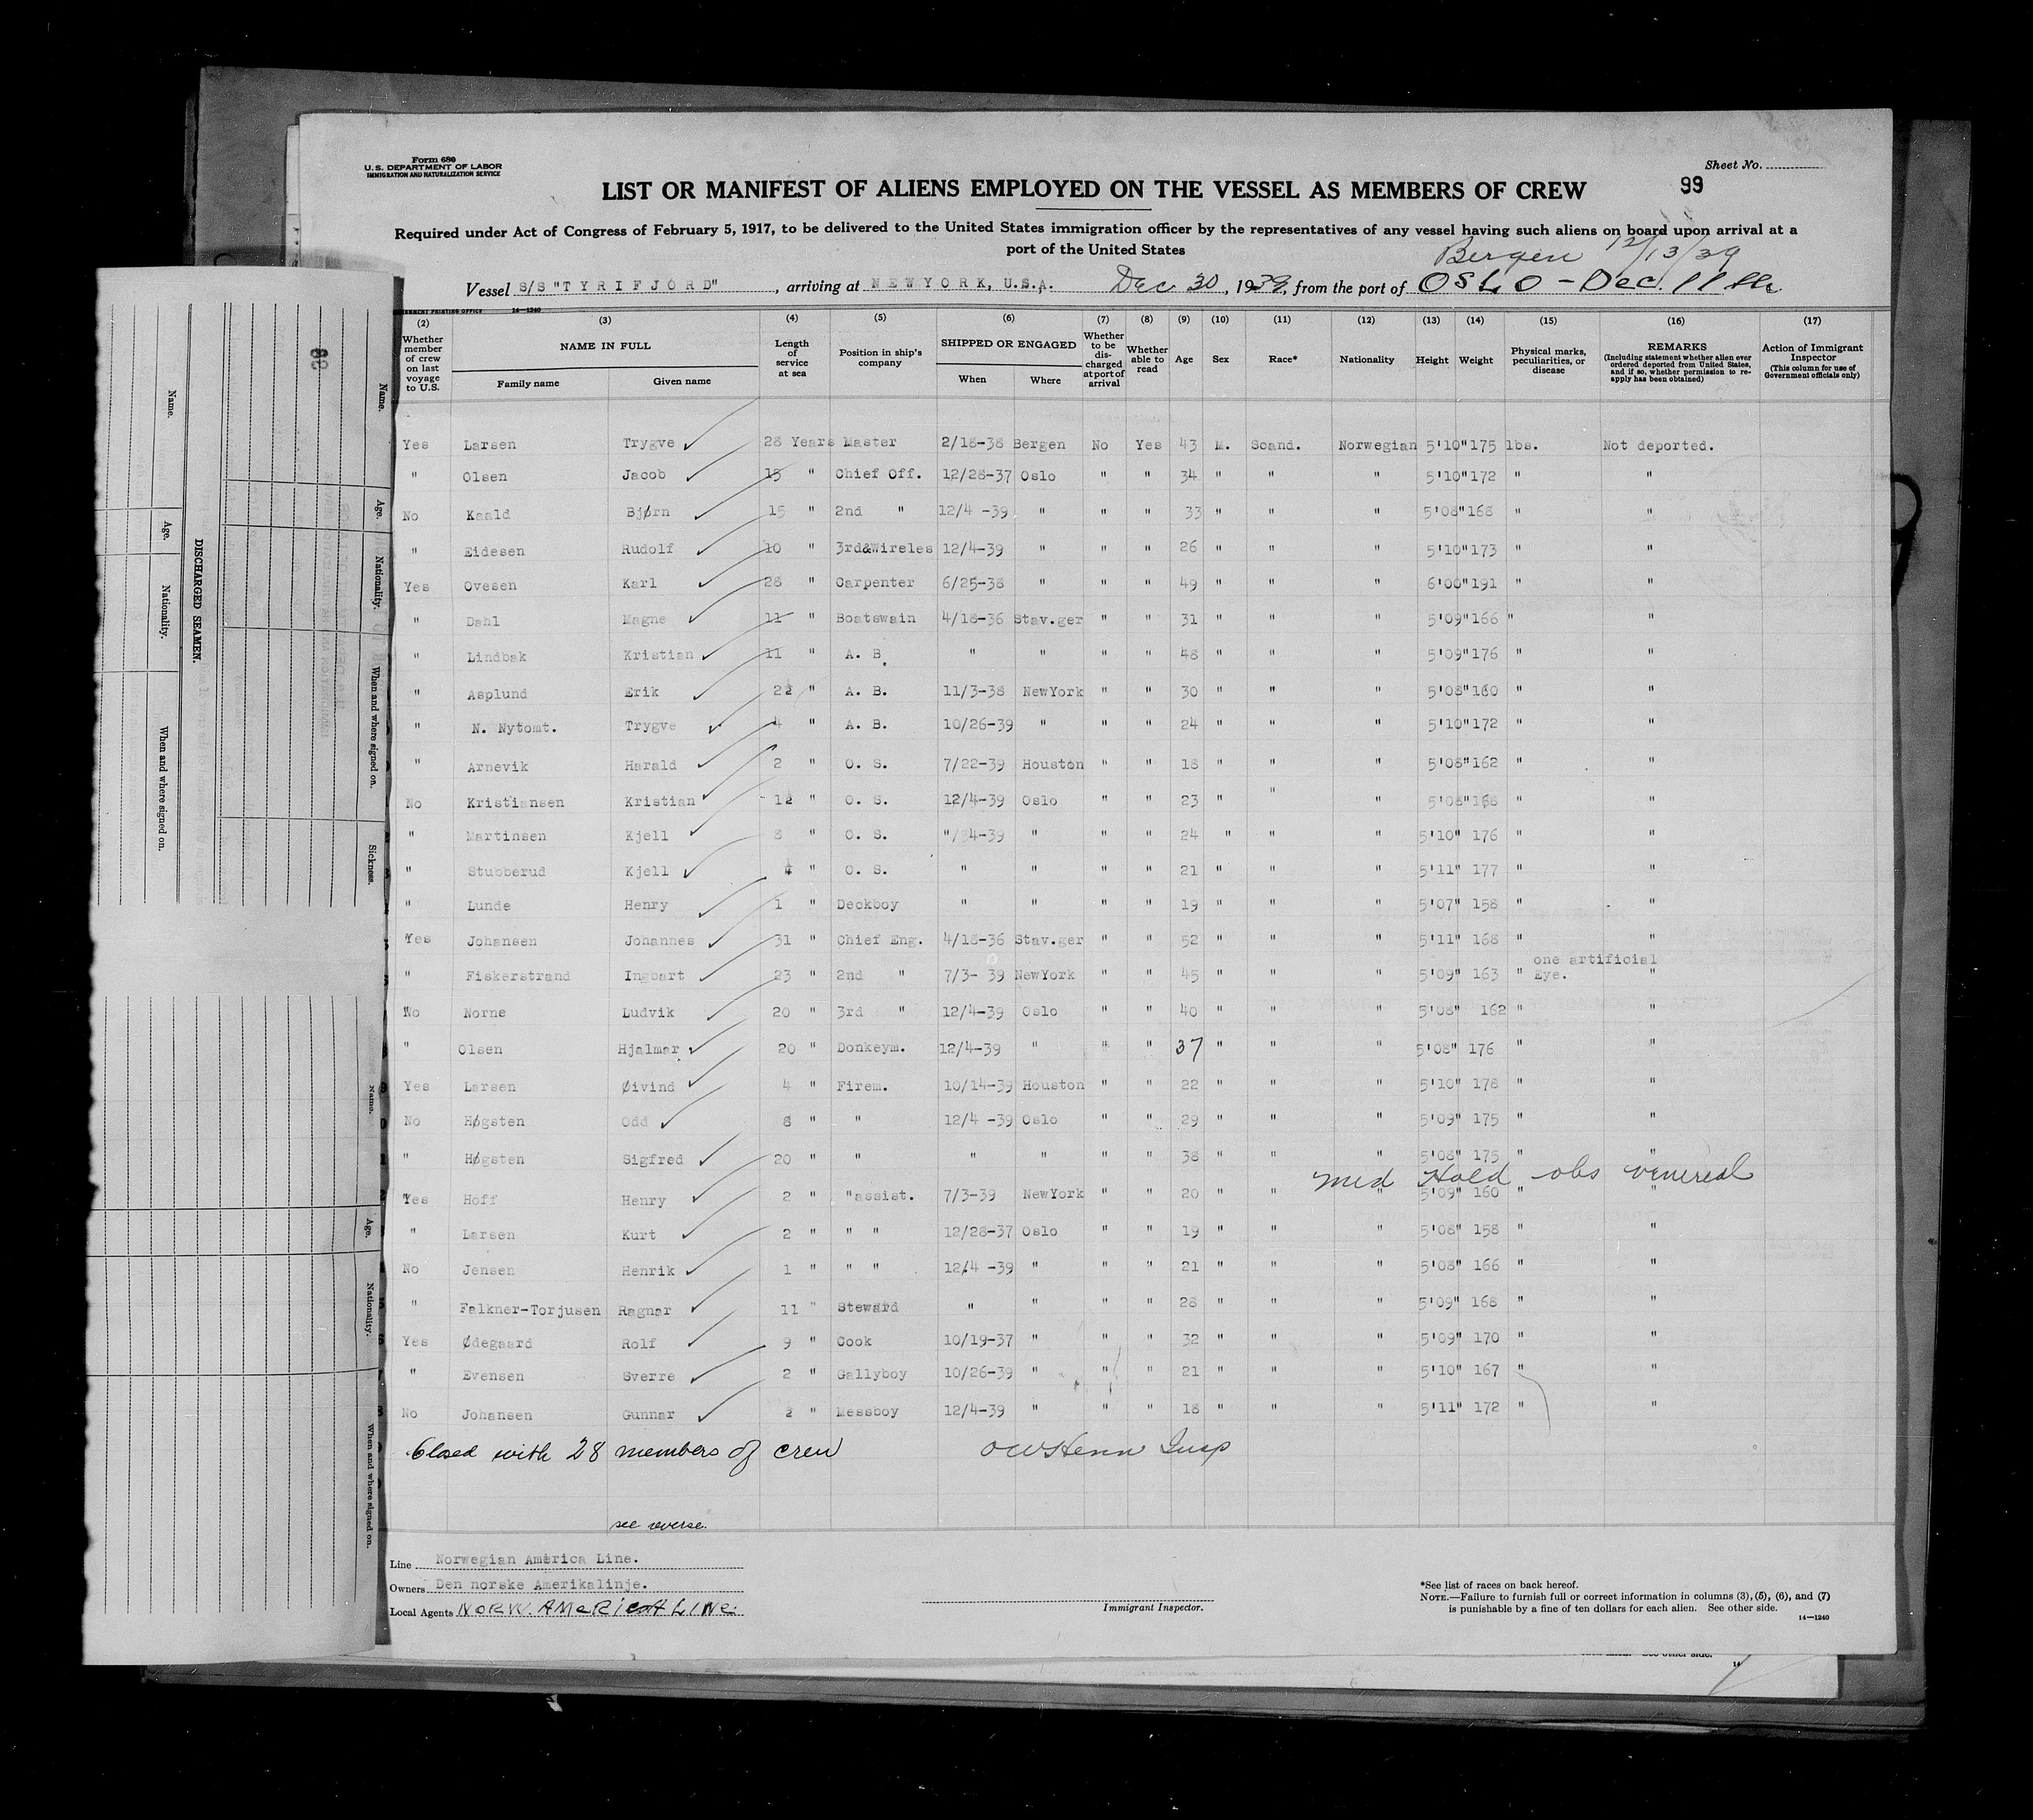 Form 680
U. S. DEPARTMENT OF LABOR
IMMIGRATION AND NATURALIZATION SERVICE
Sheet No.
99
LIST OR MANIFEST OF ALIENS EMPLOYED ON THE VESSEL AS MEMBERS OF CREW
Required under Act of Congress of February 5, 1917, to be delivered to the United States immigration officer by the representatives of any vessel having such aliens on board upon arrival at a
port of the United States
Bergen 12/13/39
Vessel S/S "TYRIFJORD", arriving at NEWYORK, U.S.A. Dec. 30, 1939, from the port of OSLO - Dec. 11th
GOVERNMENT PRINTING OFFICE 14-1240
(2) (3) (4) (5) (6) (7) (8) (9) (10) (11) (12) (13) (14) (15) (16) (17)
Whether member of crew on last voyage to U.S. NAME IN FULL Family name Given name Length of service at sea Position in ship's company SHIPPED OR ENGAGED When Where Whether to be discharged at port of arrival Whether able to read Age Sex Race* Nationality Height Weight Physical marks, peculiarities, or disease REMARKS (Including statement whether alien ever ordered deported from United States, and if so, whether permission to reapply has been obtained) Action of Immigrant Inspector (This column for use of Government officials only)
Yes Larsen Trygve 28 Years Master 2/18-38 Bergen No Yes 43 M. Scand. Norwegian 5'10" 175 lbs. Not deported.
" Olsen Jacob 15 " Chief Off. 12/28-37 Oslo " " 34 " " " 5'10" 172 " "
No Kaald Bjørn 15 " 2nd " 12/4 -39 " " " 33 " " " 5'08" 168 " "
" Eidesen Rudolf 10 " 3rd&Wireles 12/4-39 " " " 26 " " " 5'10" 173 " "
Yes Ovesen Karl 28 " Carpenter 6/25-38 " " " 49 " " " 6'00" 191 " "
" Dahl Magne 11 " Boatswain 4/18-36 Stav.ger " " 31 " " " 5'09" 166 " "
" Lindbak Kristian 11 " A. B. " " " " 48 " " " 5'09" 176 " "
" Asplund Erik 2½ " A. B. 11/3-38 NewYork " " 30 " " " 5'08" 160 " "
" N. Nytomt. Trygve 4 " A. B. 10/26-39 " " " 24 " " " 5'10" 172 " "
" Arnevik Harald 2 " O. S. 7/22-39 Houston " " 18 " " " 5'08" 162 " "
No Kristiansen Kristian 1½ " O. S. 12/4-39 Oslo " " 23 " " " 5'08" 168 " "
" Martinsen Kjell 8 " O. S. "/ 4-39 " " " 24 " " " 5'10" 176 " "
" Stubberud Kjell " O. S. " " " " 21 " " " 5'11" 177 " "
" Lunde Henry 1 " Deckboy " " " " 19 " " " 5'07" 158 " "
Yes Johansen Johannes 31 " Chief Eng. 4/18-36 Stav.ger " " 52 " " " 5'11" 168 " "
" Fiskerstrand Ingbart 23 " 2nd " 7/3- 39 NewYork " " 45 " " " 5'09" 163 " one artificial Eye. "
No Norne Ludvik 20 " 3rd " 12/4-39 Oslo " " 40 " " " 5'08" 162 " "
" Olsen Hjalmar 20 " Donkeym. 12/4-39 " " " 37 " " " 5'08" 176 " "
Yes Larsen Øivind 4 " Firem. 10/14-39 Houston " " 22 " " " 5'10" 178 " "
No Høgsten Odd 8 " " 12/4 -39 Oslo " " 29 " " " 5'09" 175 " "
" Høgsten Sigfred 20 " " " " " " 38 " " " 5'08" 175 " "
Med Hold - obs venereal
Yes Hoff Henry 2 " " assist. 7/3-39 NewYork " " 20 " " " 5'09" 160 " "
" Larsen Kurt 2 " " " 12/28-37 Oslo " " 19 " " " 5'08" 158 " "
No Jensen Henrik 1 " " " 12/4 -39 " " " 21 " " " 5'08" 166 " "
" Falkner-Torjusen Ragnar 11 " Steward " " " " 28 " " " 5'09" 168 " "
Yes Ødegaard Rolf 9 " Cook 10/19-37 " " " 32 " " " 5'09" 170 " "
" Evensen Sverre 2 " Gallyboy 10/26-39 " " " 21 " " " 5'10" 167 " "
No Johansen Gunnar ½ " Messboy 12/4-39 " " " 18 " " " 5'11" 172 " "
Closed with 28 members of crew OWHenn Insp
see reverse.
Line Norwegian America Line.
Owners Den norske Amerikalinje.
Local Agents NORW. AMERICA LINE.
Immigrant Inspector.
*See list of races on back hereof.
NOTE.—Failure to furnish full or correct information in columns (3), (5), (6), and (7)
is punishable by a fine of ten dollars for each alien. See other side.
14—1240
DISCHARGED SEAMEN.
Name. Age. Nationality. When and where signed on.
Name. Age. Nationality. When and where signed on. Sickness.
Name. Age. Nationality. When and where signed on.
99